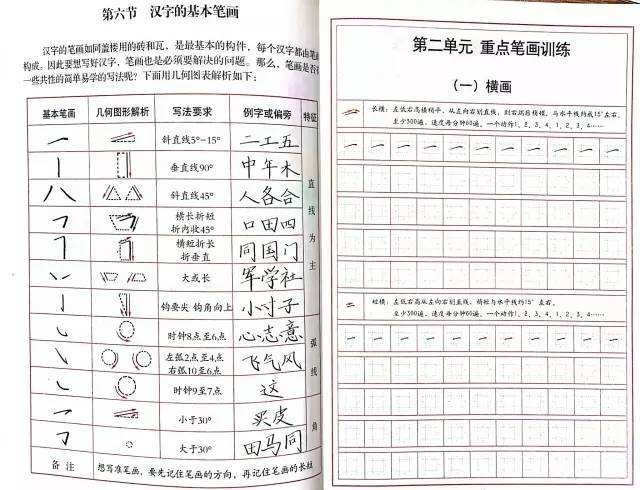 第六节 汉字的基本笔画
汉字的笔画如同盖楼用的砖和瓦，是最基本的构件，每个汉字都由笔画
构成。因此要想写好汉字，笔画也是必须要解决的问题。那么，笔画是否有
一些共性的简单易学的写法呢？下面用几何图表解析如下：
基本笔画 几何图形解析 写法要求 例字或偏旁 特征
斜直线5°-15° 二工五
垂直线90° 中年木
斜直线45° 人各合
横长折短 折内收45° 口田四
横短折长 折垂直 同国门
大或长 军学社
直线为主
钩要尖 钩角向上 小寸子
时钟8点至6点 心志意
左弧2点至4点 右弧10至6点 飞气风
时钟9至7点 这
弧线
小于30° 买皮
大于30° 田马同
角
备注 想写准笔画，要先记住笔画的方向，再记住笔画的长短
第二单元 重点笔画训练
（一）横画
长横：左低右高横稍平，从左向右划直线，与水平线约成15°左右，
至少300遍，速度每分钟60遍，一个动作1、2、3、4，1、2、3、4……
一 一 一 一 一 一 一 一 一 一 一
短横：左低右高从左向右划直线，稍短与水平线约15°左右，
至少300遍，速度每分钟60遍，一个动作1、2、3、4，1、2、3、4……
一 一 一 一 一 一 一 一 一 一 一